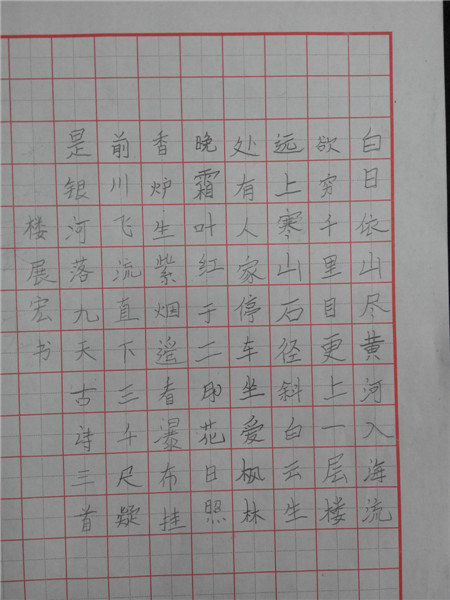 白日依山尽黄河入海流
欲穷千里目更上一层楼
远上寒山石径斜白云生
处有人家停车坐爱枫林
晚霜叶红于二月花日照
香炉生紫烟遥看瀑布挂
前川飞流直下三千尺疑
是银河落九天古诗三首
楼展宏书